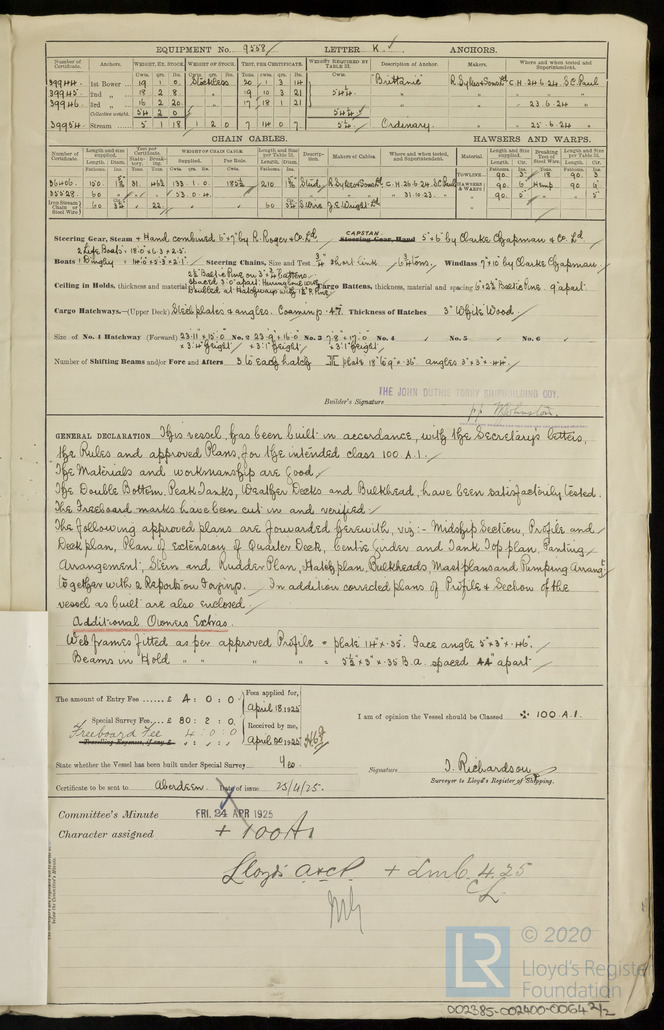 EQUIPMENT No. 9558 LETTER K ANCHORS.
Number of Certificate. Anchors. WEIGHT, EX. STOCK. WEIGHT OF STOCK. TEST, PER CERTIFICATE. WEIGHT REQUIRED BY TABLE 31. Description of Anchor. Makers. Where and when tested and Superintendent.
39944 1st Bower 19 1 0 Stockless 20 1 3 14 "Brittanic" R. Sykes & Sons Ld C.H. 24.6.24 S.C. Paul
39945 2nd " 18 2 8 19 10 3 21 54½
39946 3rd " 16 2 20 17 18 1 21 " " 23.6.24 "
Collective weight. 54 2 0 54½
39954 Stream 5 1 18 1 2 0 7 14 0 7 5¼ Ordinary. " " 25.6.24 "
CHAIN CABLES. HAWSERS AND WARPS.
Number of Certificate. Length and size supplied. Test per Certificate. WEIGHT OF CHAIN CABLE. Length and Size per Table 31. Description. Makers of Cables. Where and when tested, and Superintendent. Material. Length and Size supplied. Breaking Test of Steel Wire. Length and Size per Table 31.
Length. Diam. Tons. Breaking. Supplied. Per Rule. Length. Diam. Length. Cir. Length. Cir.
36406 150 133.1.0 210 Stud R. Sykes & Sons Ld C.H. 26.6.24. S.C. Paul TOWLINE 90 3 18 90 3
35528 60 53.0.4 " " 31.10.23 HAWSERS & WARPS 90 6 Hemp 90 6
Iron Stream Chain or Steel Wire 60 22 60 S. Wire J.E. Wright Ld " 90 5 90 5
Steering Gear, Steam & Hand combined 6"x7" by R. Roger & Co. Ld CAPSTAN Steering Gear, Hand 5"x6" by Clarke Chapman & Co. Ld
2 Life Boats = 18.0 x 6.3 x 2.5
Boats 1 Dinghy = 14.0 x 5.3 x 2.1 Steering Chains, Size and Test ¾" short link 6¾ tons. Windlass 7"x10" by Clarke Chapman.
Ceiling in Holds, thickness and material 2½" Baltic Pine on 3"x2" battens spaced 3'0" apart. Cargo Battens, thickness, material and spacing 6"x2½" Baltic Pine. 9" apart.
Cargo Hatchways.—(Upper Deck) Steel plates & angles. Coaming .47 Thickness of Hatches 3" White Wood.
Size of No. 1 Hatchway (Forward) 23.11 x 15.0 x 3.4 height No. 2 23.9 x 16.0 x 3.1 height No. 3 7.8 x 17.0 x 3.1 height No. 4 No. 5 No. 6
Number of Shifting Beams and/or Fore and Afters 3 to each hatch plate 18" to 9" x .36 angles 3"x3"x.44
THE JOHN DUTHIE TORRY SHIPBUILDING COY.
Builder's Signature
GENERAL DECLARATION This vessel, has been built in accordance, with the Secretarys letters,
the Rules and approved Plans, for the intended class 100 A.1.
The Materials and workmanship are Good.
The Double Bottom, Peak Tanks, Weather Decks and Bulkhead, have been satisfactorily Tested.
The Freeboard marks have been cut in and verified.
The following approved plans are forwarded herewith, viz:- Midship Section, Profile and
Deck plan, Plan of Extension of Quarter Deck, Centre Girder and Tank Top plan, Panting
Arrangement, Stern and Rudder Plan, Hatch plan, Bulkheads, Mast plans and Pumping Arrangt
Together with 2 Reports on Forgings. In addition corrected plans of Profile & Section of the
vessel as built are also enclosed.
Additional Owners Extras.
Web frames fitted as per approved Profile = plate 14" x .35. Face angle 5" x 3" x .46"
Beams in Hold " " " " = 5½" x 3" x .35 B.A. spaced 44" apart.
The amount of Entry Fee £ 4 : 0 : 0 Fees applied for, April 18 1925
Special Survey Fee £ 80 : 2 : 0 Received by me,
Freeboard Fee 4 : 0 : 0
Travelling Expenses, if any £ April 20 1925
I am of opinion the Vessel should be Classed ✠ 100 A.1.
State whether the Vessel has been built under Special Survey Yes.
Signature J. Richardson
Surveyor to Lloyd's Register of Shipping.
Certificate to be sent to Aberdeen. Date of issue 25/4/25.
Committee's Minute FRI. 24 APR 1925
Character assigned + 100A1
Lloyd's A&CP. + LMC. 4.25
CL
© 2020
LR
Lloyd's Register
Foundation
002385-002400-0064 2/2